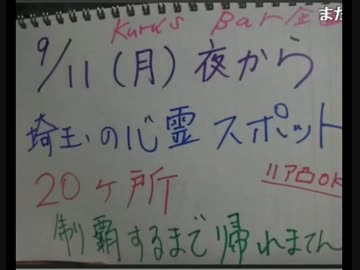 Kuru's Bar企
また
9/11(月)夜から
埼玉の心霊スポット
20ヶ所
リアBOK
制覇するまで帰れまてん